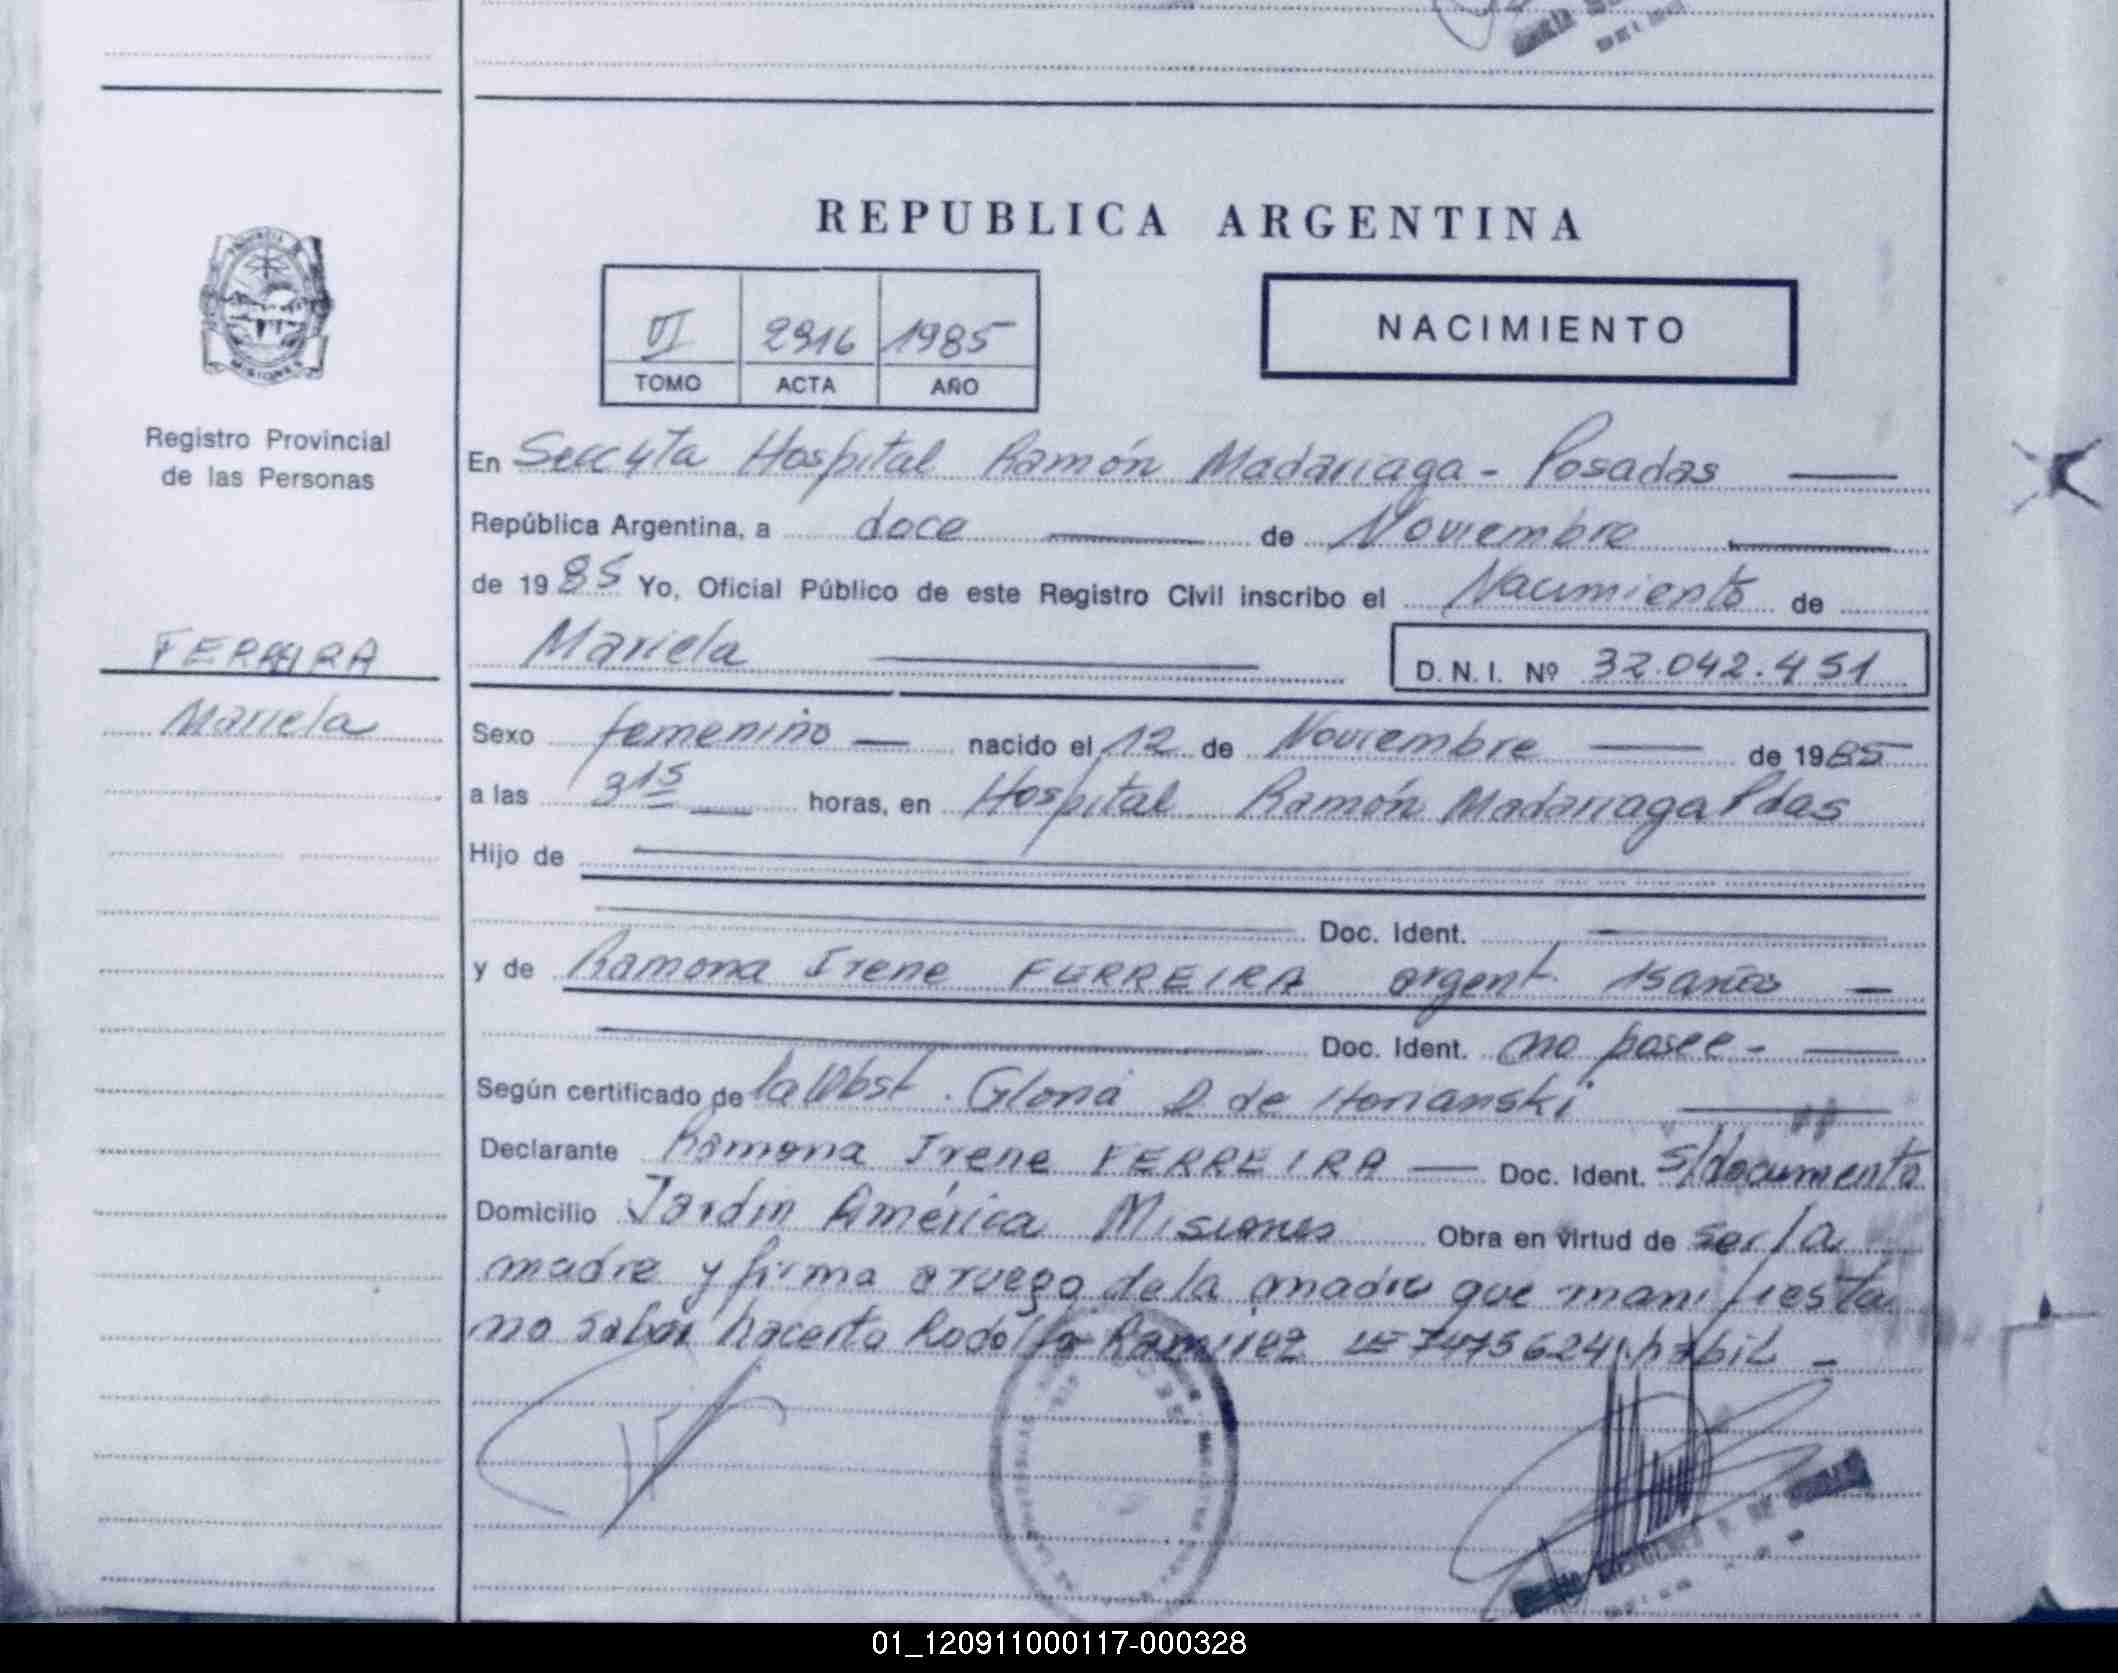 REPUBLICA ARGENTINA
VI 2916 1985
TOMO ACTA AÑO
NACIMIENTO
MISIONES
Registro Provincial
de las Personas
FERREIRA
Mariela
En Secc 4ta Hospital Ramón Madariaga - Posadas
República Argentina, a doce de Noviembre
de 1985 Yo, Oficial Público de este Registro Civil inscribo el Nacimiento de
Mariela D.N.I. Nº 32.042.451
Sexo femenino nacido el 12 de Noviembre de 1985
a las 3 15 horas, en Hospital Ramón Madariaga Pdas
Hijo de
Doc. Ident.
y de Ramona Irene FERREIRA argent. 15 años
Doc. Ident. no posee -
Según certificado de la Obst. Gloria D. de
Declarante Ramona Irene FERREIRA Doc. Ident. s/documento
Domicilio Jardín América Misiones Obra en virtud de ser la
madre y firma a ruego de la madre que manifiesta
no saber hacerlo Rodolfo Ramirez LE 7475624 habil -
01_120911000117-000328